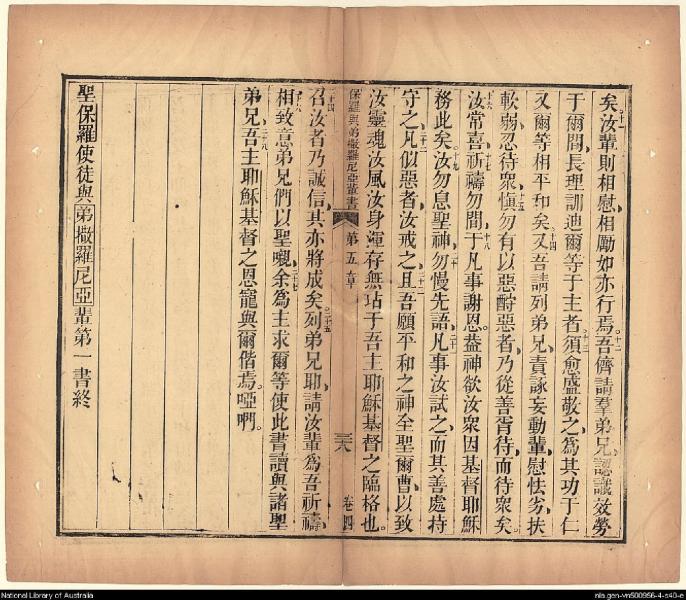 矣汝輩則相慰相勵如亦行焉十二吾儕請羣弟兄認識效勞
于爾間長理訓迪爾等于主者十三須愈盛敬之為其功于仁
又爾等相平和矣十四又吾請列弟兄責詠妄動輩慰怯劣扶
軟弱忍待衆十五愼勿有以惡酧惡者乃從善胥待而待衆矣
十六汝常喜十七祈禱勿間十八于凡事謝恩葢神欲汝衆因基督耶穌
務此矣十九汝勿息聖神二十勿慢先語二十一凡事汝試之而其善處持
守之二十二凡似惡者汝戒之二十三且吾願平和之神全聖爾曹以致
汝靈魂汝風汝身渾存無玷于吾主耶穌基督之臨格也
保羅與弟撒羅尼亞輩書 第五章 卷四
二十四召汝者乃誠信其亦將成矣二十五列弟兄耶請汝輩為吾祈禱
二十六相致意弟兄們以聖嘬二十七余為主求爾等使此書讀與諸聖
弟兄二十八吾主耶穌基督之恩寵與爾偕焉啞㖿
聖保羅使徒與弟撒羅尼亞輩第一書終
National Library of Australia
nla.gen-vn500956-4-s40-e